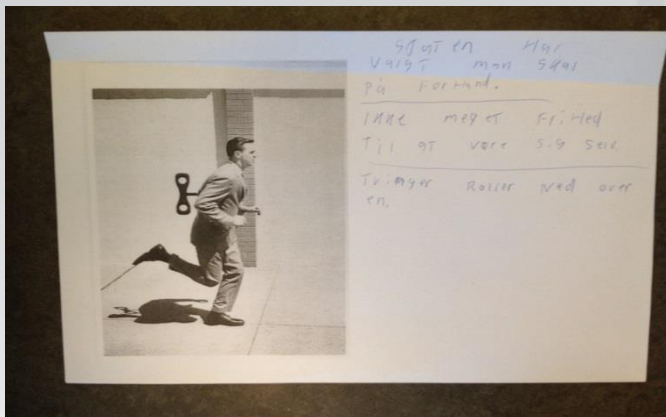 Staten Har
Valgt man Skal
på Forhånd.
Ikke meget Frihed
Til at være sig selv.
Tvinger Roller Ned over
en.